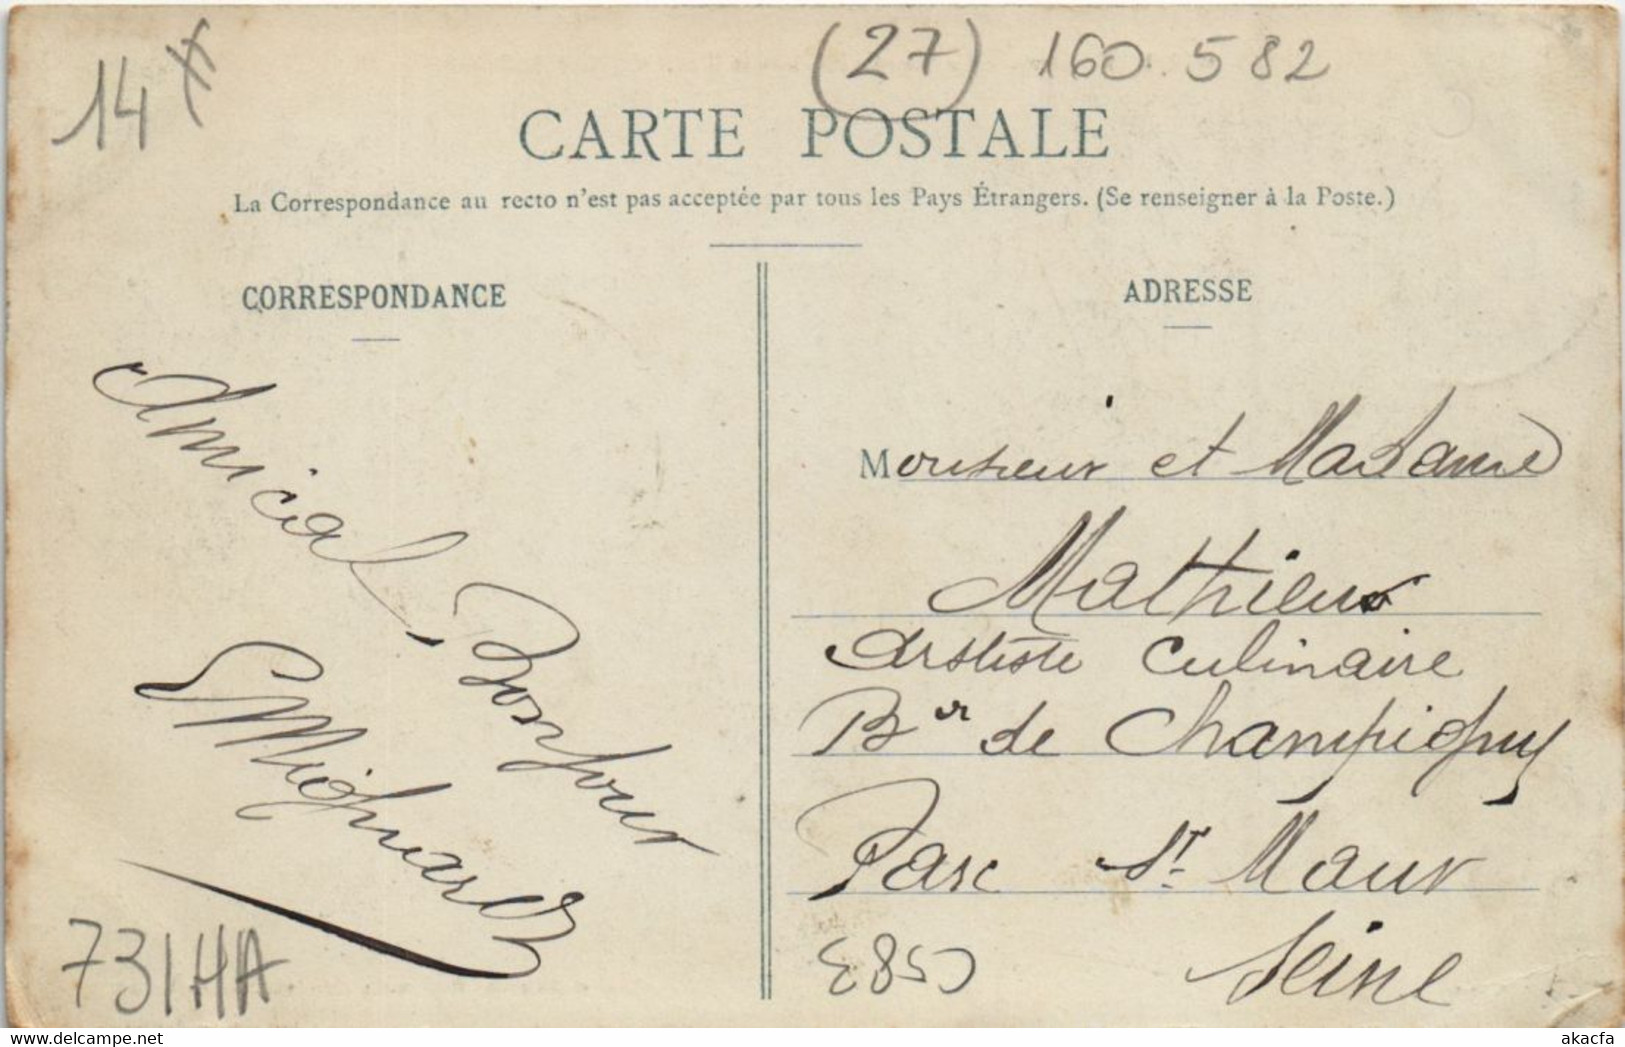 14 #
(27) 160.582
CARTE POSTALE
La Correspondance au recto n'est pas acceptée par tous les Pays Étrangers. (Se renseigner à la Poste.)
CORRESPONDANCE
Amical Bonjour
731HA
ADRESSE
Monsieur et Madame
Mathieu
Artiste Culinaire
Bʳ de Champigny
Parc Sᵗ Maur
Seine
C583
www.delcampe.net
akacfa